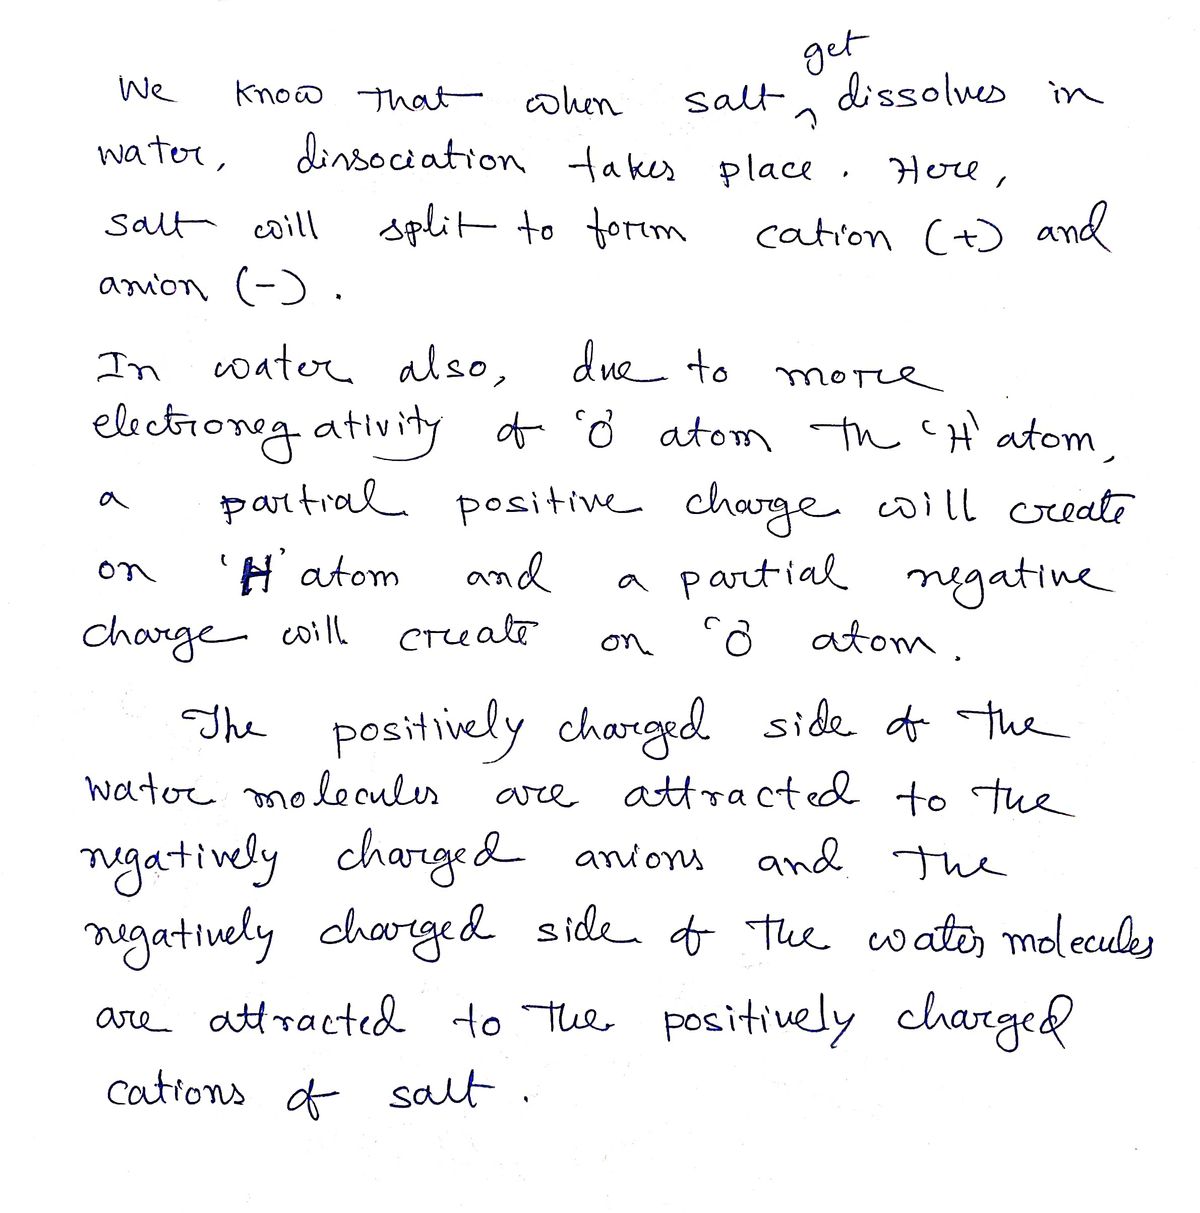 We know that when salt get dissolves in
water, dissociation takes place. Here,
salt will split to form cation (+) and
anion (-).
In water also, due to more
electronegativity of 'O' atom th 'H' atom,
a partial positive charge will create
on 'H' atom and a partial negative
charge will create on 'O' atom.
The positively charged side of the
water molecules are attracted to the
negatively charged anions and the
negatively charged side of the water molecules
are attracted to the positively charged
cations of salt.